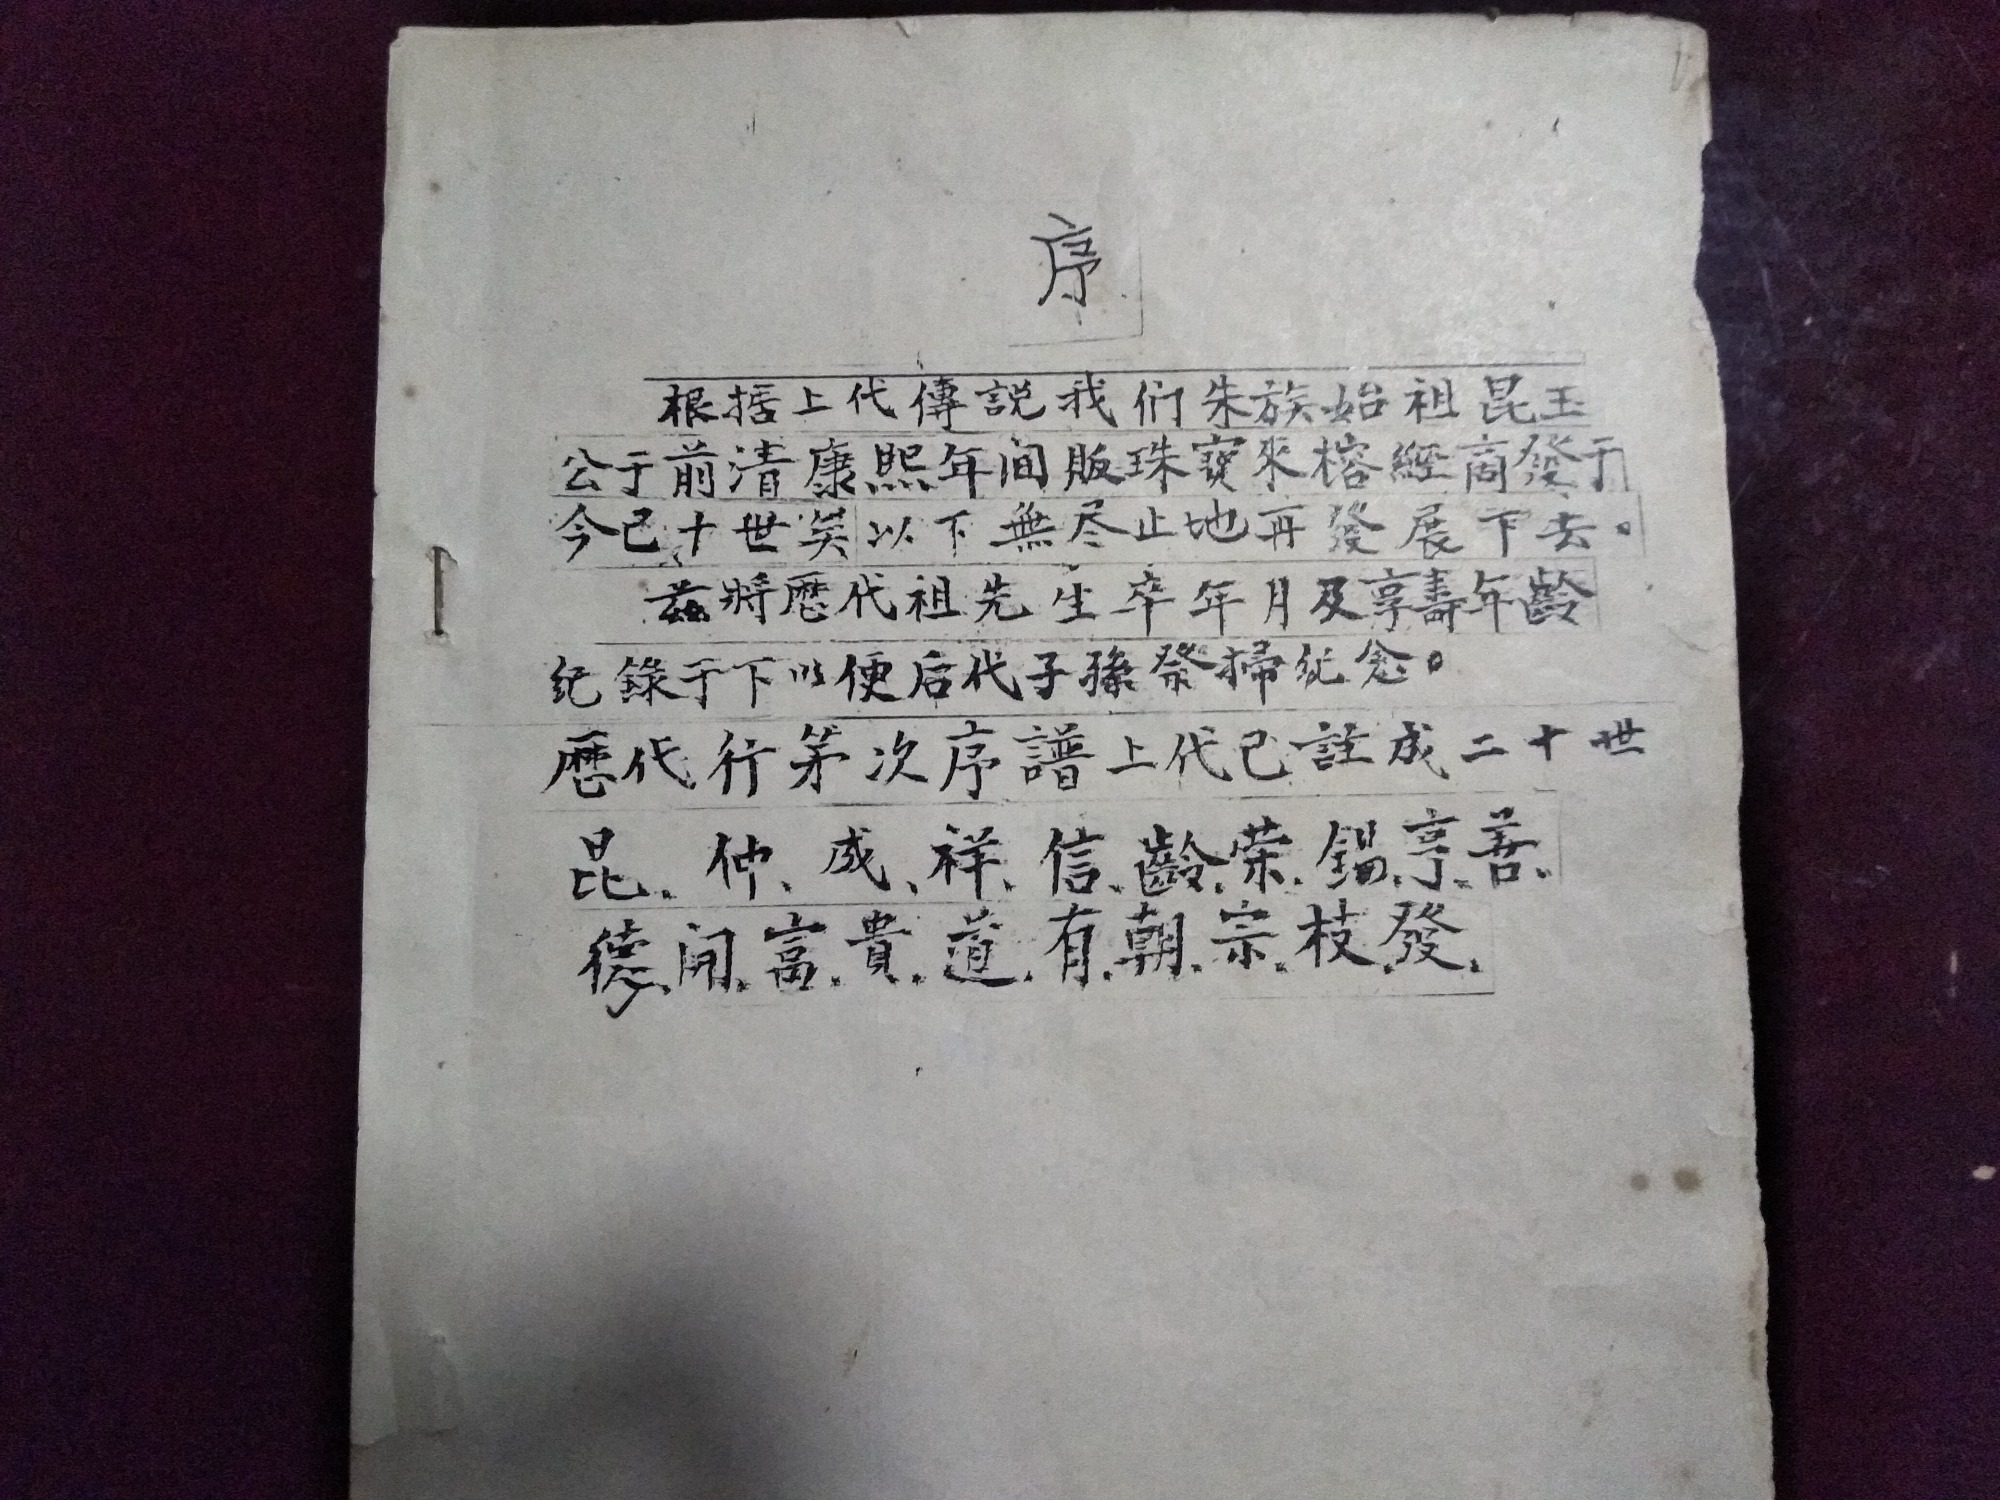 序
根据上代傳説我们朱族始祖昆玉
公于前清康熙年间販珠寶來榕經商發于
今已十世矣以下無尽止地再發展下去。
兹將歷代祖先生卒年月及享壽年齡
纪錄于下以便后代子孫祭掃纪念。
歷代行第次序譜上代已註成二十世
昆、仲、成、祥、信、齡、荣、錫、亨、善、
德、開、富、貴、道、有、朝、宗、枝、發、